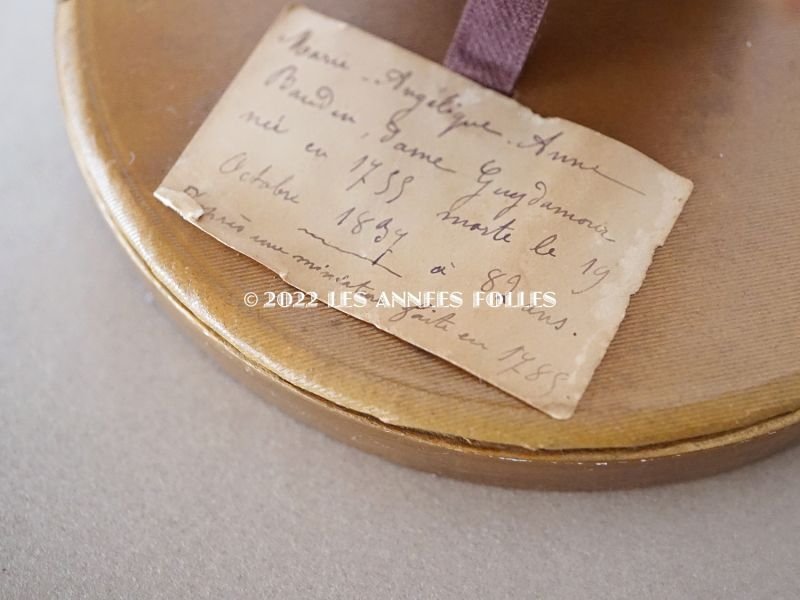 Marie-Angélique-Anne
Baudin, dame Guydamour
née en 1755 morte le 19
Octobre 1837 à 82 ans.
D'après une miniature faite en 1785.
© 2022 LES ANNEES FOLLES